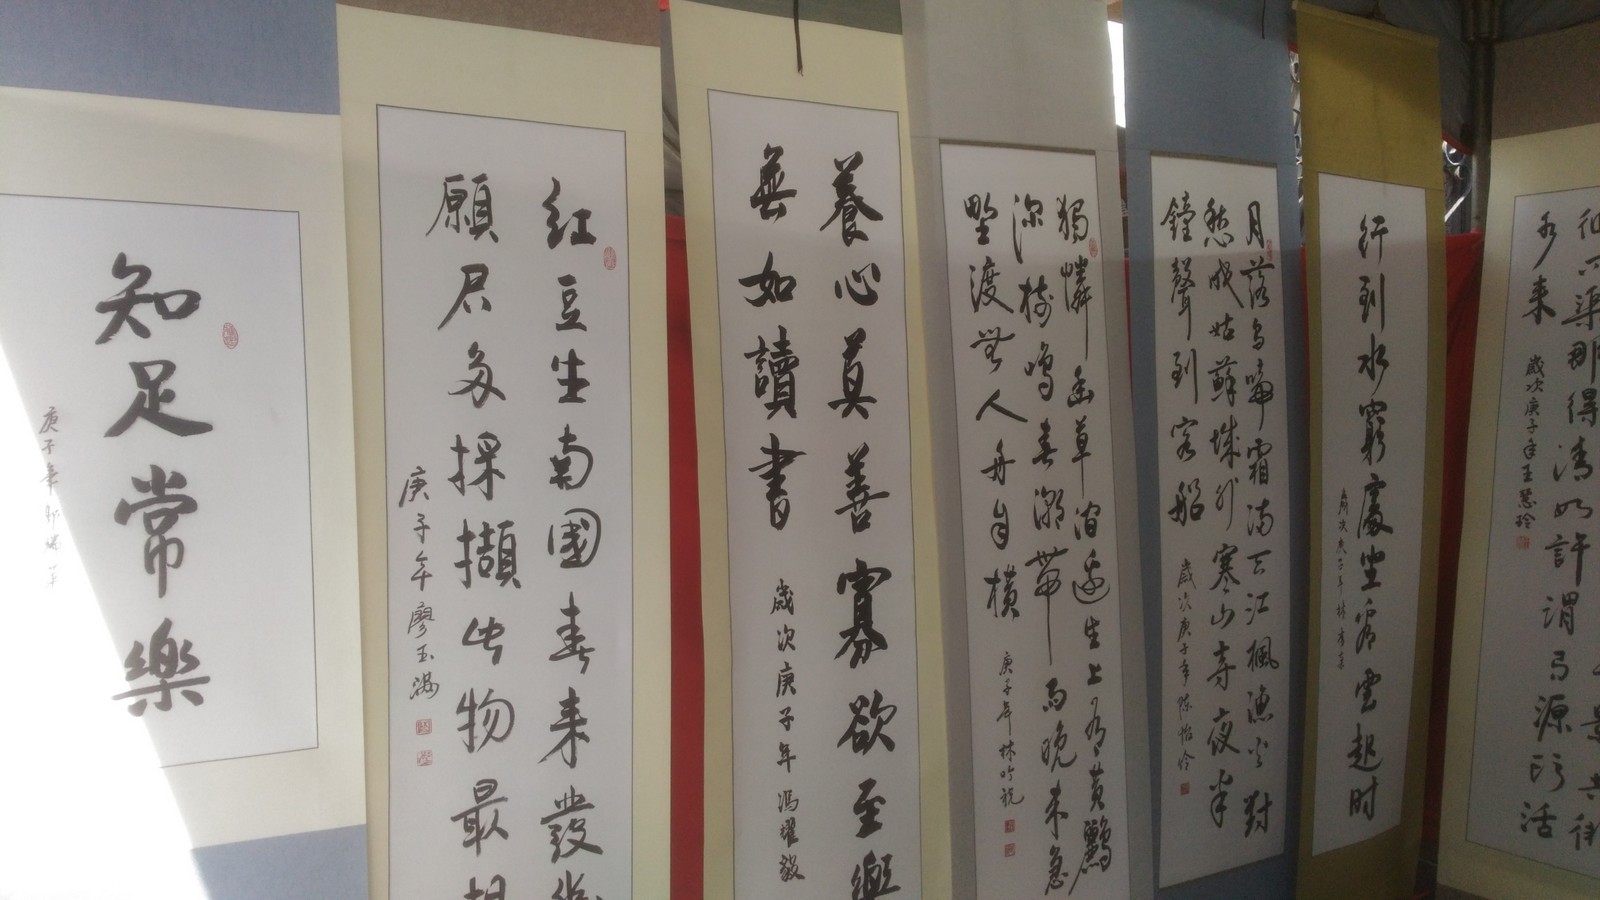 知足常樂
庚子年
紅豆生南國春來發幾
願君多採擷此物最相
庚子年廖玉滿
養心莫善寡欲至樂
無如讀書
歲次庚子年 馮耀毅
獨憐幽草澗邊生上有黃鸝
深樹鳴春潮帶雨晚來急
野渡無人舟自橫
庚子年林吟
月落烏啼霜滿天江楓漁火對
愁眠姑蘇城外寒山寺夜半
鐘聲到客船
歲次庚子年陳怡伶
行到水窮處坐看雲起时
歲次庚子年林
渠那得清如許謂有源頭活
水來
歲次庚子年王慧玲